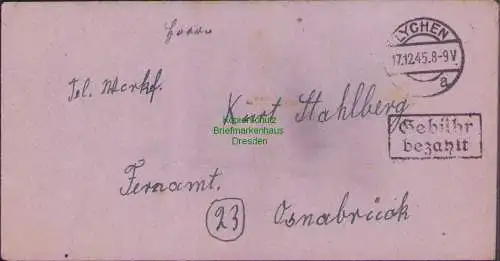 Herrn
LYCHEN
17.12.45.8-9V
a
Tel. Werkf.
Kurt Stahlberg
Kopierschutz
Briefmarkenhaus
Dresden
Gebühr
bezahlt
Fernamt.
23
Osnabrück